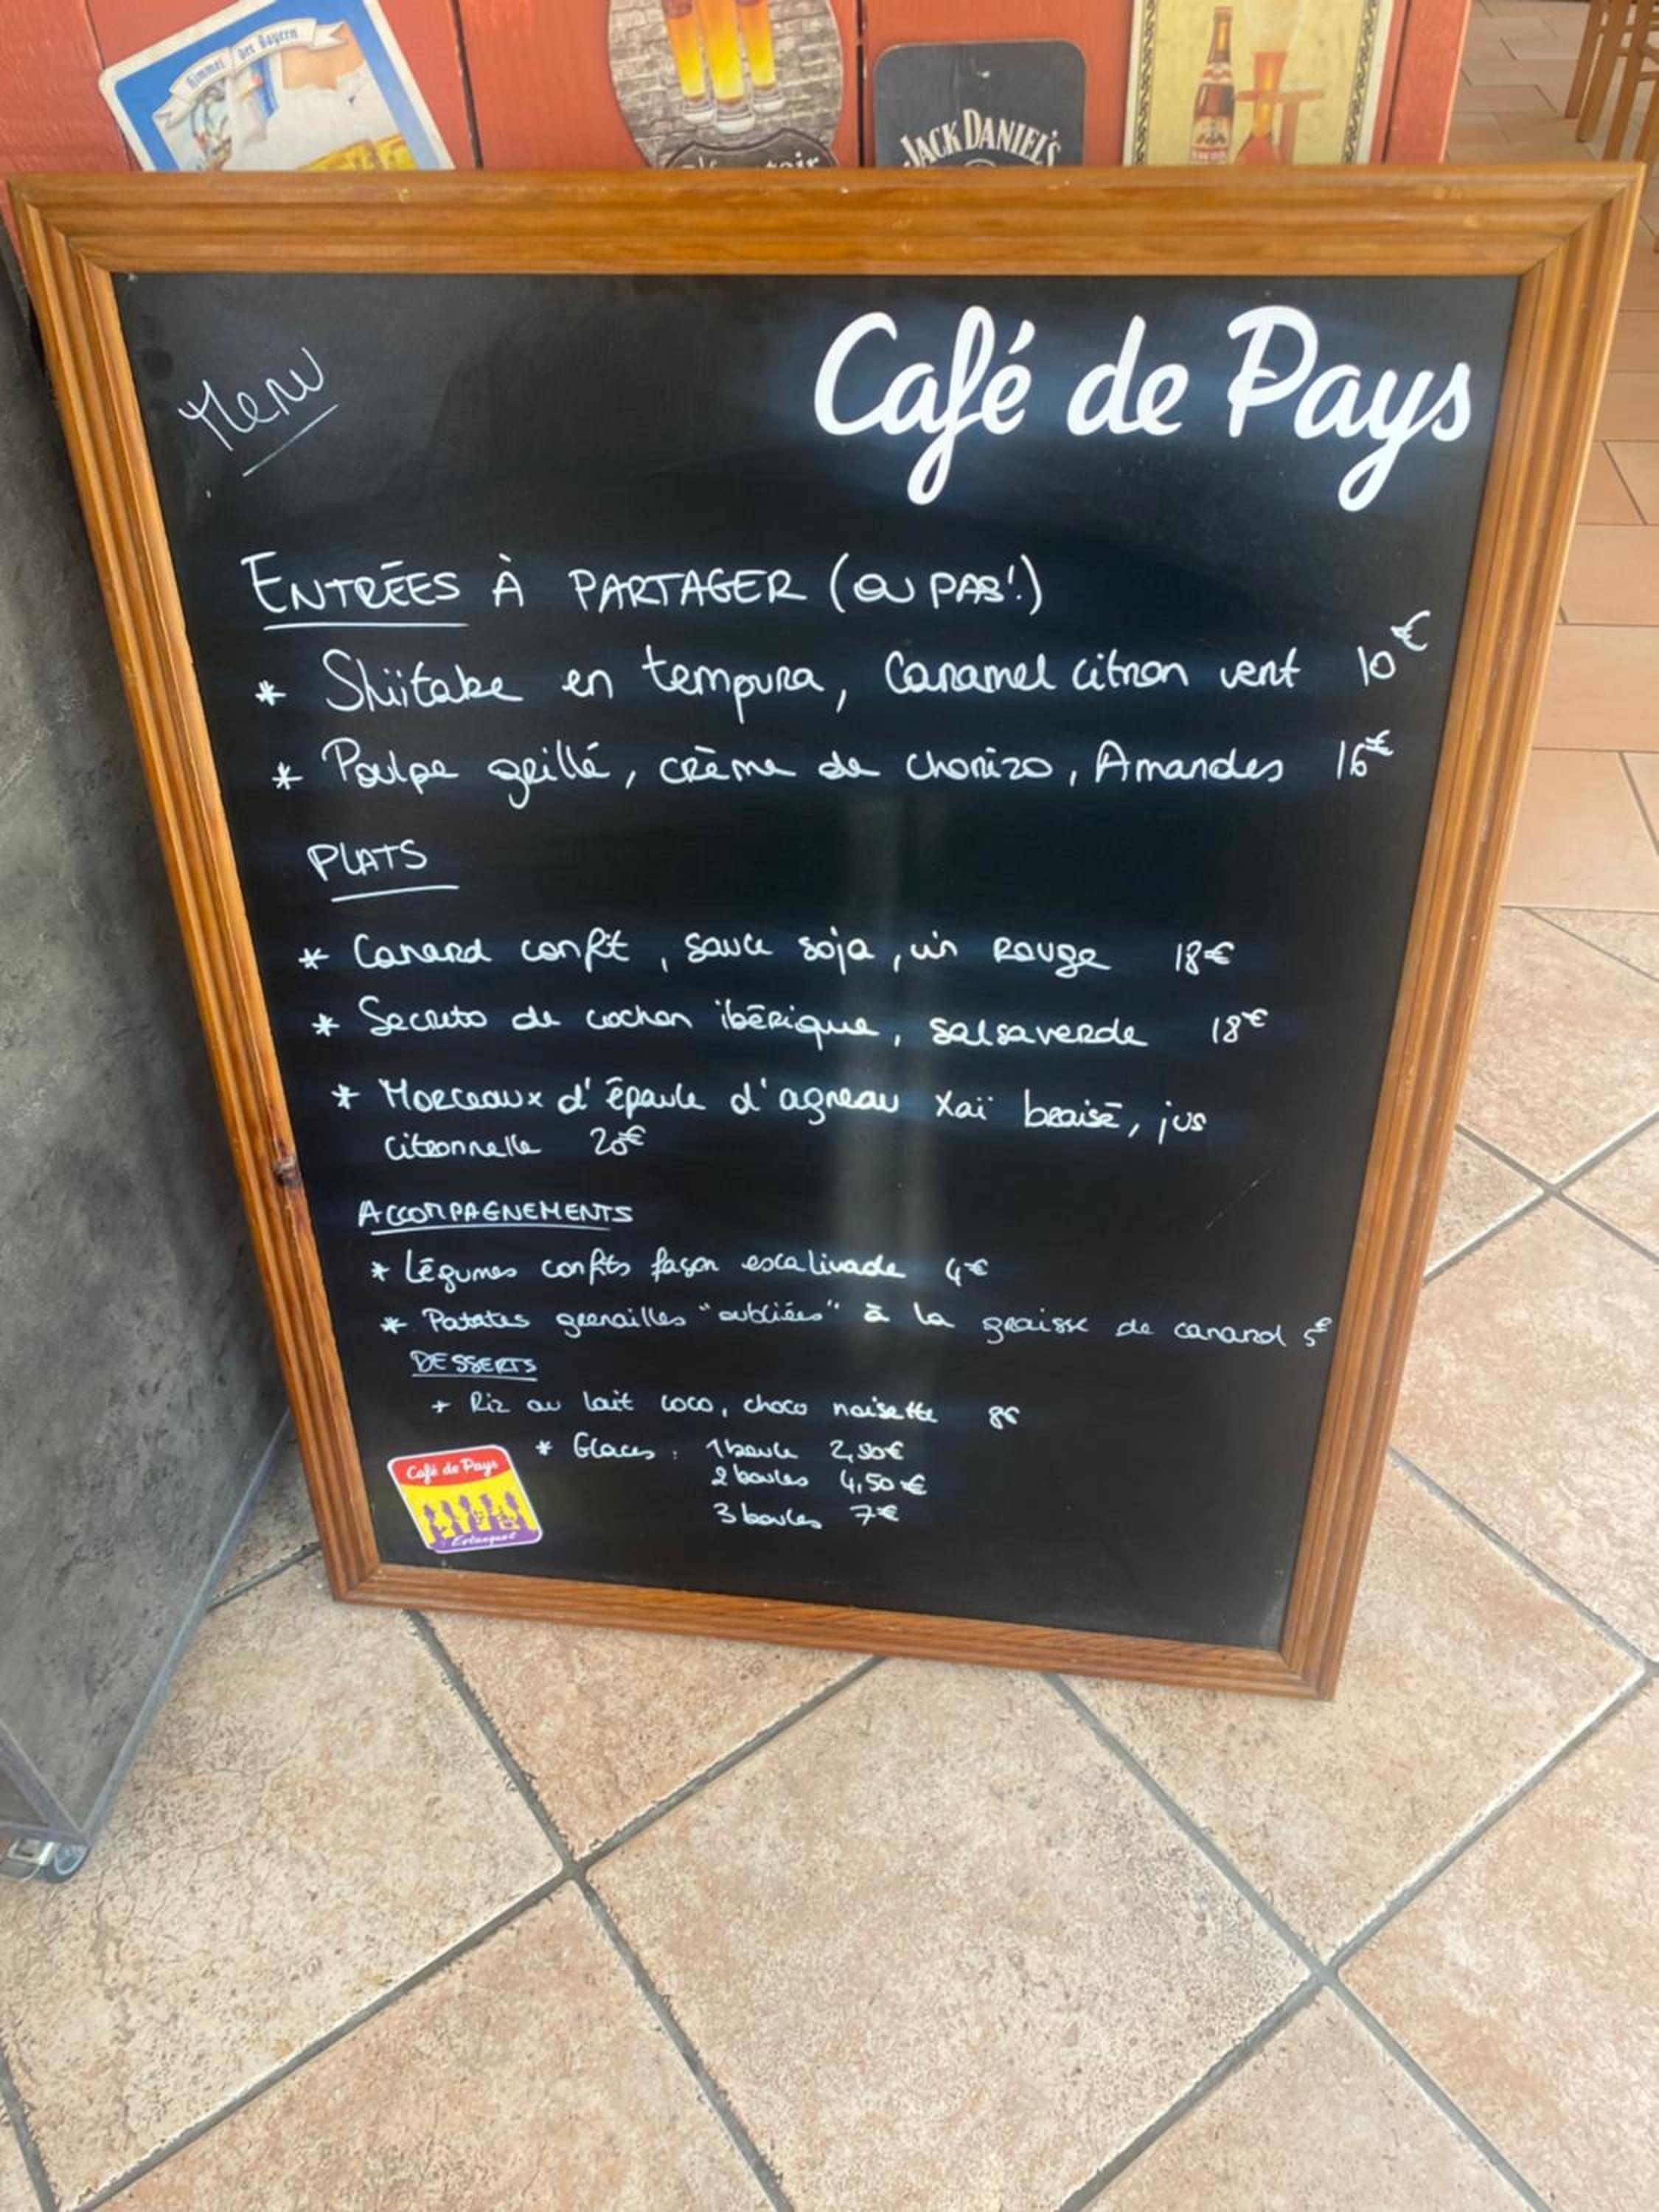 Himmel der Bayern
JACK DANIEL'S
Menu
Café de Pays
ENTRÉES À PARTAGER (OU PAS!)
* Shiitake en tempura, Caramel citron vert 10€
* Poulpe grillé, crème de chorizo, Amandes 16€
PLATS
* Canard confit, sauce soja, vin Rouge 18€
* Secreto de cochon ibérique, salsa verde 18€
* Morceaux d'épaule d'agneau Xaï braisé, jus
citronnelle 20€
ACCOMPAGNEMENTS
* Légumes confits façon escalivade 4€
* Patates grenailles "oubliées" à la graisse de canard 5€
DESSERTS
* Riz au lait coco, choco noisette 8€
* Glaces : 1 boule 2,50€
2 boules 4,50€
3 boules 7€
Café de Pays
Estanquet